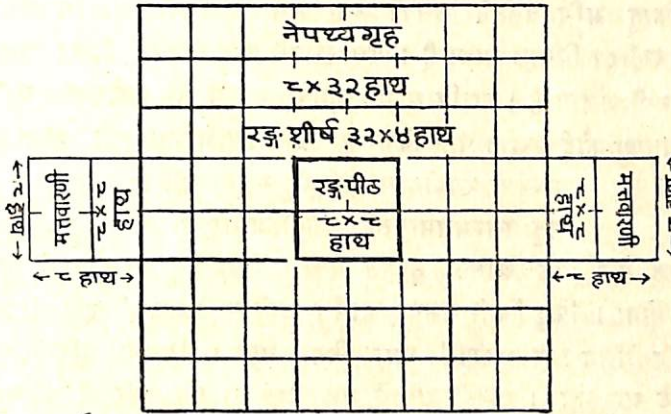 नेपथ्यगृह
८×३२ हाथ
रङ्गशीर्ष ३२×४ हाथ
← ८ हाथ →
मत्तवारणी
८×८
हाथ
← ८ हाथ →
रङ्गपीठ
८×८
हाथ
८×८
हाथ
मत्तवारणी
← ८ हाथ →
← ८ हाथ →